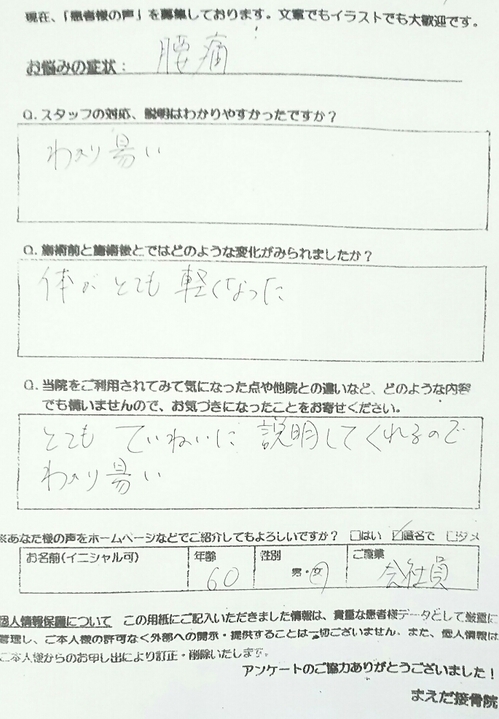 現在、「患者様の声」を募集しております。文章でもイラストでも大歓迎です。
お悩みの症状: 腰痛
Q. スタッフの対応、説明はわかりやすかったですか?
わかり易い
Q. 施術前と施術後とではどのような変化がみられましたか?
体がとても軽くなった
Q. 当院をご利用されてみて気になった点や他院との違いなど、どのような内容
でも構いませんので、お気づきになったことをお寄せください。
とてもていねいに説明してくれるので
わかり易い
※あなた様の声をホームページなどでご紹介してもよろしいですか? □はい ☑匿名で □ダメ
お名前(イニシャル可) 年齢 性別 ご職業
60 男・女 会社員
個人情報保護について この用紙にご記入いただきました情報は、貴重な患者様データとして厳重に
管理し、ご本人様の許可なく外部への開示・提供することは一切ございません。また、個人情報は
ご本人様からのお申し出により訂正・削除いたします。
アンケートのご協力ありがとうございました!
まえだ接骨院